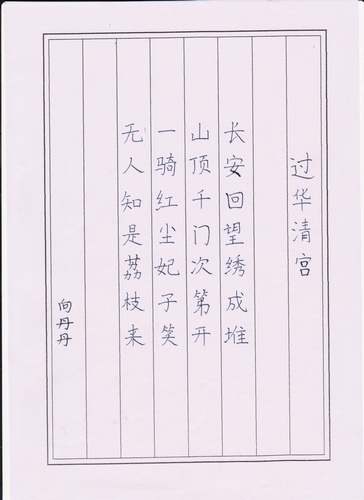 过华清宫
长安回望绣成堆
山顶千门次第开
一骑红尘妃子笑
无人知是荔枝来
向丹丹